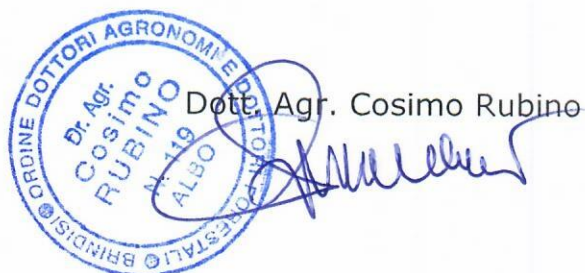 ORDINE DOTTORI AGRONOMI E DOTTORI FORESTALI BRINDISI
Dr. Agr.
Cosimo
RUBINO
N. 119
ALBO
Dott. Agr. Cosimo Rubino